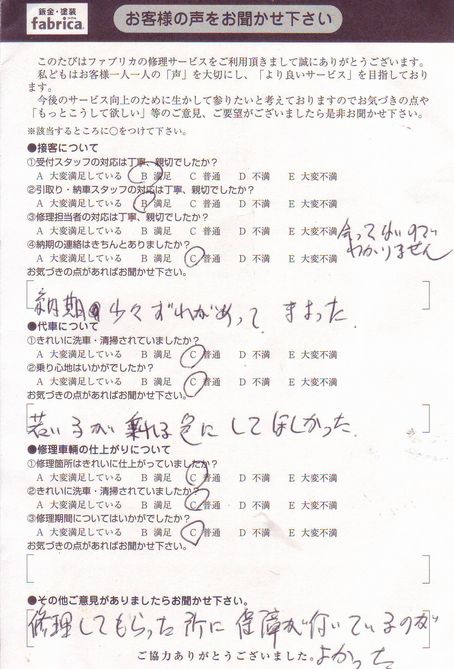 鈑金・塗装
fabrica.
お客様の声をお聞かせ下さい
このたびはファブリカの修理サービスをご利用頂きまして誠にありがとうございます。
私どもはお客様一人一人の「声」を大切にし、「より良いサービス」を目指しており
ます。
今後のサービス向上のために生かして参りたいと考えておりますのでお気づきの点や
「もっとこうして欲しい」等のご意見、ご要望がございましたら是非お聞かせ下さい。
※該当するところに○をつけて下さい。
●接客について
①受付スタッフの対応は丁寧、親切でしたか?
A 大変満足している B 満足 C 普通 D 不満 E 大変不満
②引取り・納車スタッフの対応は丁寧、親切でしたか?
A 大変満足している B 満足 C 普通 D 不満 E 大変不満
③修理担当者の対応は丁寧、親切でしたか?
A 大変満足している B 満足 C 普通 D 不満 E 大変不満
会ってないので
わかりません
④納期の連絡はきちんとありましたか?
A 大変満足している B 満足 C 普通 D 不満 E 大変不満
お気づきの点があればお聞かせ下さい。
納期 少々ずれがあって、まよった.
●代車について
①きれいに洗車・清掃されていましたか?
A 大変満足している B 満足 C 普通 D 不満 E 大変不満
②乗り心地はいかがでしたか?
A 大変満足している B 満足 C 普通 D 不満 E 大変不満
お気づきの点があればお聞かせ下さい。
若い子が乗れる色にしてほしかった.
●修理車輌の仕上がりについて
①修理箇所はきれいに仕上がっていましたか?
A 大変満足している B 満足 C 普通 D 不満 E 大変不満
②きれいに洗車・清掃されていましたか?
A 大変満足している B 満足 C 普通 D 不満 E 大変不満
③修理期間についてはいかがでしたか?
A 大変満足している B 満足 C 普通 D 不満 E 大変不満
お気づきの点があればお聞かせ下さい。
●その他ご意見がありましたらお聞かせ下さい。
修理してもらった所に保障が付いているのが
よかった
ご協力ありがとうございました。